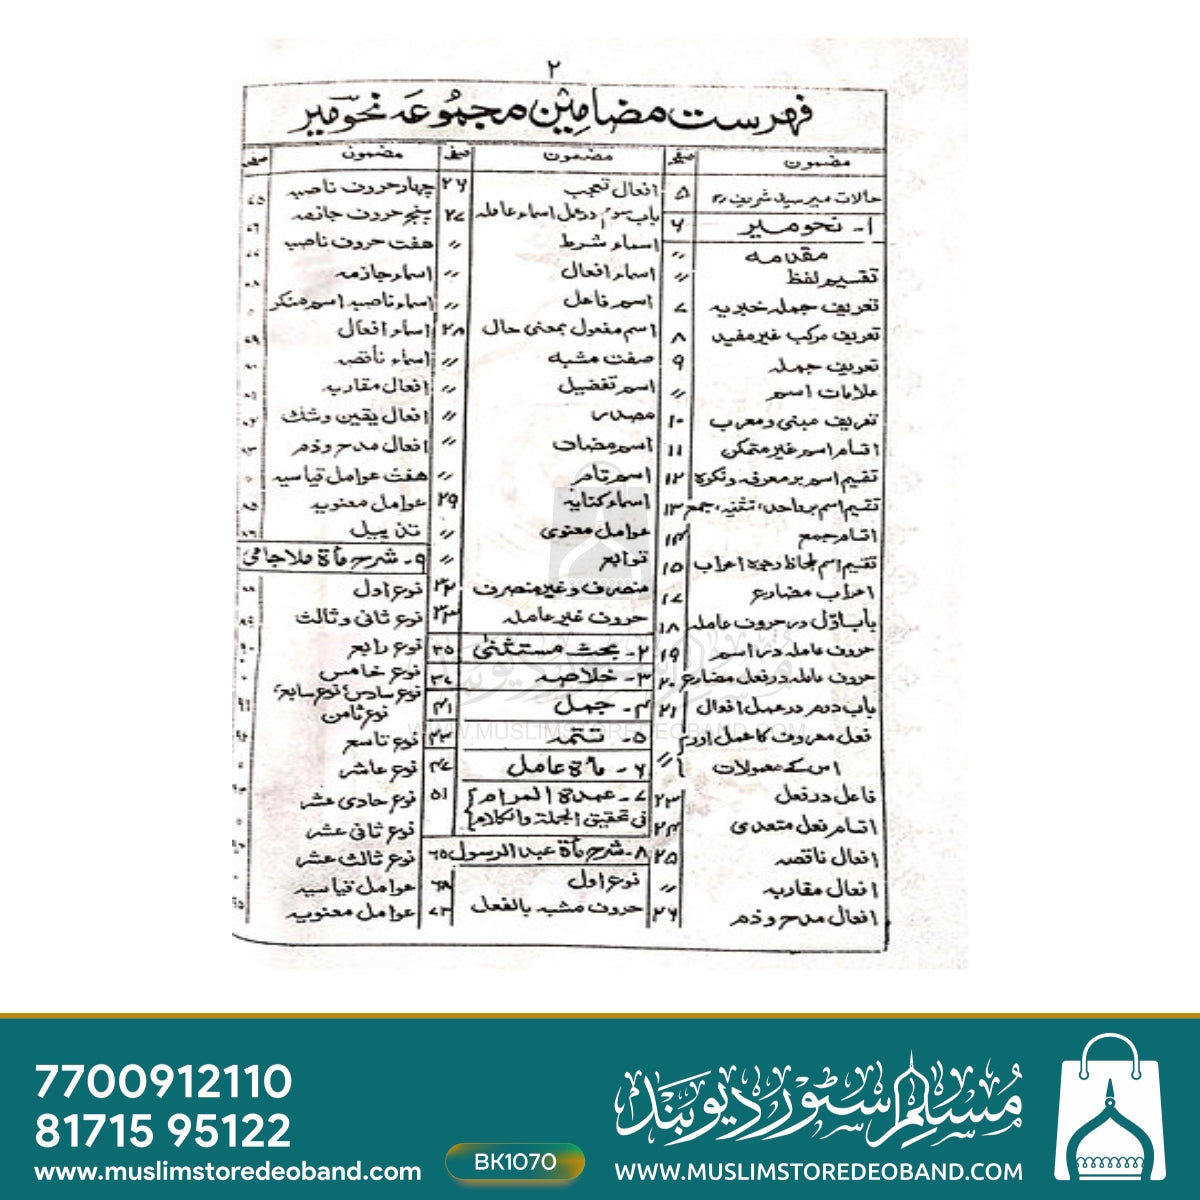 ۲
فہرست مضامین مجموعہ نحو میر
مضمون صفحہ
حالات میر سید شریفؒ ۵
۱- نحو میر ۶
مقدمہ 〃
تقسیم لفظ 〃
تعریف جملہ خبریہ ۷
تعریف مرکب غیر مفید ۸
تعریف جملہ ۹
علامات اسم 〃
تعریف مبنی و معرب ۱۰
اقسام اسم غیر متمکن ۱۱
تقسیم اسم بر معرفہ و نکرہ ۱۲
تقسیم اسم بر واحد، تثنیہ، جمع ۱۳
اقسام جمع ۱۴
تقسیم اسم بلحاظ وجوہ اعراب ۱۵
اعراب مضارع ۱۷
باب اوّل در حروف عاملہ ۱۸
حروف عاملہ در اسم ۱۹
حروف عاملہ در فعل مضارع ۲۰
باب دوم در عمل افعال ۲۱
فعل معروف کا عمل اور
اس کے معمولات 〃
فاعل در فعل ۲۳
اقسام فعل متعدی ۲۴
افعال ناقصہ ۲۵
افعال مقاربہ 〃
افعال مدح و ذم ۲۶
مضمون صفحہ
افعال تعجب ۲۶
باب سوم در عمل اسماء عاملہ ۲۷
اسماء شرط 〃
اسماء افعال 〃
اسم فاعل 〃
اسم مفعول بمعنی حال ۲۸
صفت مشبہ 〃
اسم تفضیل 〃
مصدر 〃
اسم مضاف 〃
اسم تام 〃
اسماء کنایہ ۲۹
عوامل معنوی 〃
توابع 〃
منصرف و غیر منصرف ۳۲
حروف غیر عاملہ ۳۳
۲- بحث مستثنیٰ ۳۵
۳- خلاصہ ۳۷
۴- جمل ۴۱
۵- تتمہ ۴۳
۶- مأۃ عامل ۴۷
۷- عمدۃ المرام
فی تحقیق الجملۃ والکلام ۵۱
۸- شرح مأۃ عبد الرسول ۶۵
نوع اول ۶۸
حروف مشبہ بالفعل ۷۳
مضمون صفحہ
چہار حروف ناصبہ ۷۵
پنج حروف جازمہ ۷۶
ہفت حروف ناصب
اسماء جازمہ
اسماء ناصبہ اسم منکر
اسماء افعال
اسماء ناقصہ
افعال مقاربہ
افعال یقین و شک
افعال مدح و ذم
ہفت عوامل قیاسیہ
عوامل معنویہ
تذییل
۹- شرح مأۃ ملا جامی
نوع اول
نوع ثانی و ثالث
نوع رابع
نوع خامس
نوع سادس، نوع سابع،
نوع ثامن
نوع تاسع
نوع عاشر
نوع حادی عشر
نوع ثانی عشر
نوع ثالث عشر
عوامل قیاسیہ
عوامل معنویہ
WWW.MUSLIMSTOREDEOBAND.COM
7700912110
81715 95122
www.muslimstoredeoband.com
BK1070
مسلم سٹور دیوبند
WWW.MUSLIMSTOREDEOBAND.COM